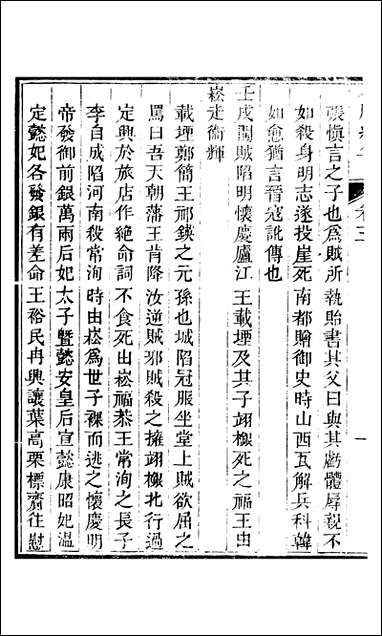 卷三
一
張慎言之子也爲賊所執貽書其父曰與其虧體辱親不
如殺身明志遂投崖死南都贈御史時山西瓦解兵科韓
如愈猶言晉寇訛傳也
壬戌闖賊陷明懷慶廬江王載堙及其子翊櫸死之福王由
崧走衞輝
載堙鄭簡王祁鍈之元孫也城陷冠服坐堂上賊欲屈之
罵曰吾天朝藩王肯降汝逆賊邪賊殺之擁翊櫸北行過
定興於旅店作絶命詞不食死由崧福恭王常洵之長子
李自成陷河南殺常洵時由崧爲世子裸而逃之懷慶明
帝發御前銀萬兩后妃太子暨懿安皇后宣懿康昭妃温
定懿妃各發銀有差命王裕民冉興讓葉高栗標齎往慰